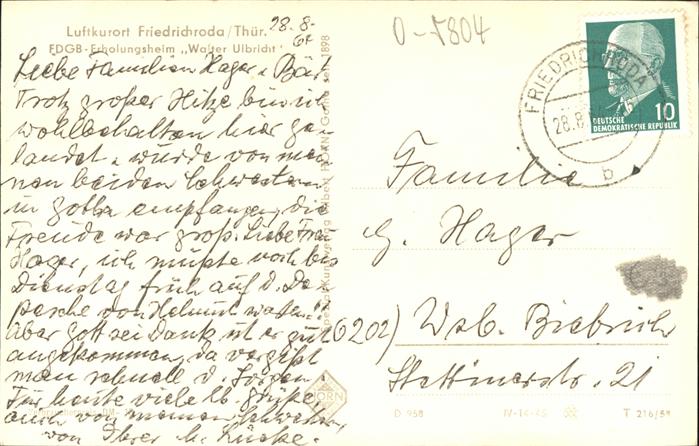 Luftkurort Friedrichroda/Thür.
FDGB-Erholungsheim „Walter Ulbricht"
28.8.
Liebe Familien Hager u. Bär
Trotz großer Hitze bin ich
wohlbehalten hier ge-
landet u. wurde von mei-
nen beiden Schwestern
in Gotha empfangen, die
Freude war groß. Liebe Frau
Hager, ich mußte noch bis
Dienstag früh auf d. De-
pesche von Helmut warten.
Aber Gott sei Dank ist er gut
angekommen, da vergißt
man schnell d. Sorgen
Für heute viele lb. Grüße
auch von meinen Schwestern
von Ihrer
0-5804
FRIEDRICHRODA
28.8.
b
10
DEUTSCHE
DEMOKRATISCHE REPUBLIK
Familie
G. Hager
(6202) Wsb. Biebrich
Stettinerstr. 21
D 958
IV-14-45
T 216/58